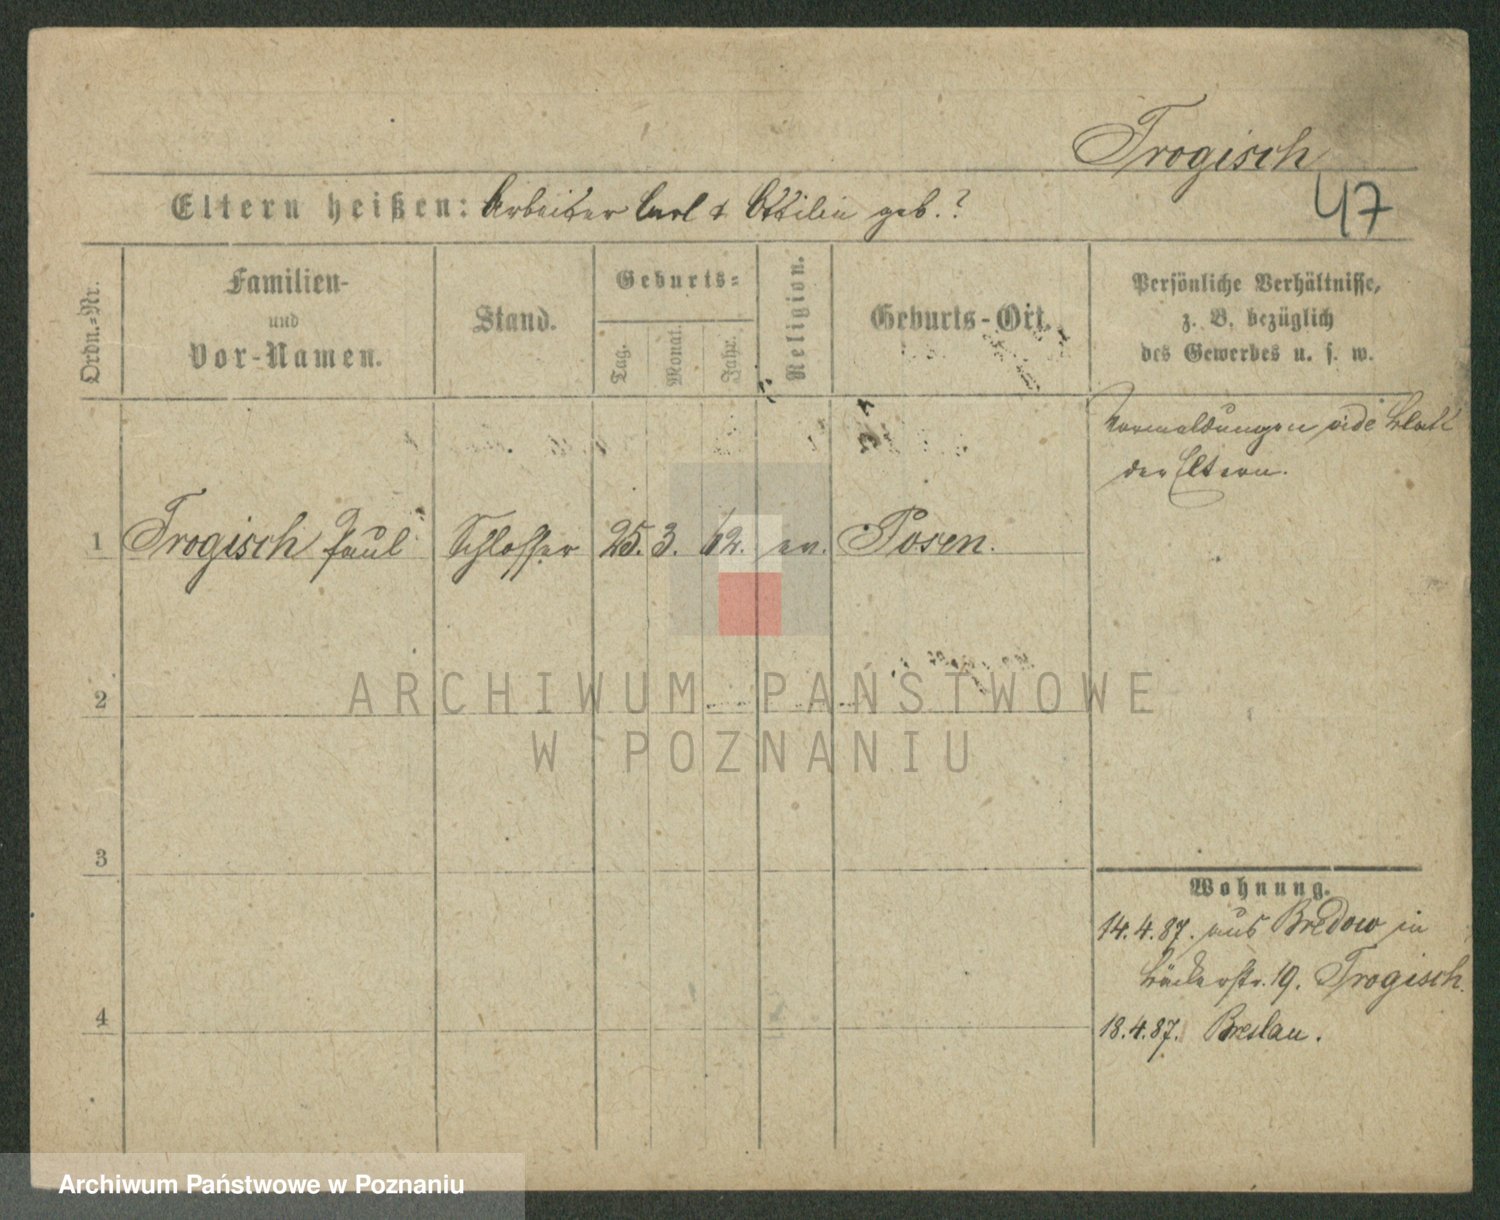 Trogisch
47
Eltern heißen: Arbeiter Carl & Ottilie geb.?
Ordn.=Nr.
Familien-
und
Vor-Namen.
Stand.
Geburts=
Tag.
Monat.
Jahr.
Religion.
Geburts-Ort.
Persönliche Verhältnisse,
z. B. bezüglich
des Gewerbes u. s. w.
Vormeldungen vide Blatt
der Eltern.
1 Trogisch Paul Schlosser 25. 3. 62. ev. Posen.
2
3
4
Wohnung.
14.4.87. aus Bredow in
Bäckerstr. 19. Trogisch.
18.4.87. Breslau.
ARCHIWUM PAŃSTWOWE
W POZNANIU
Archiwum Państwowe w Poznaniu